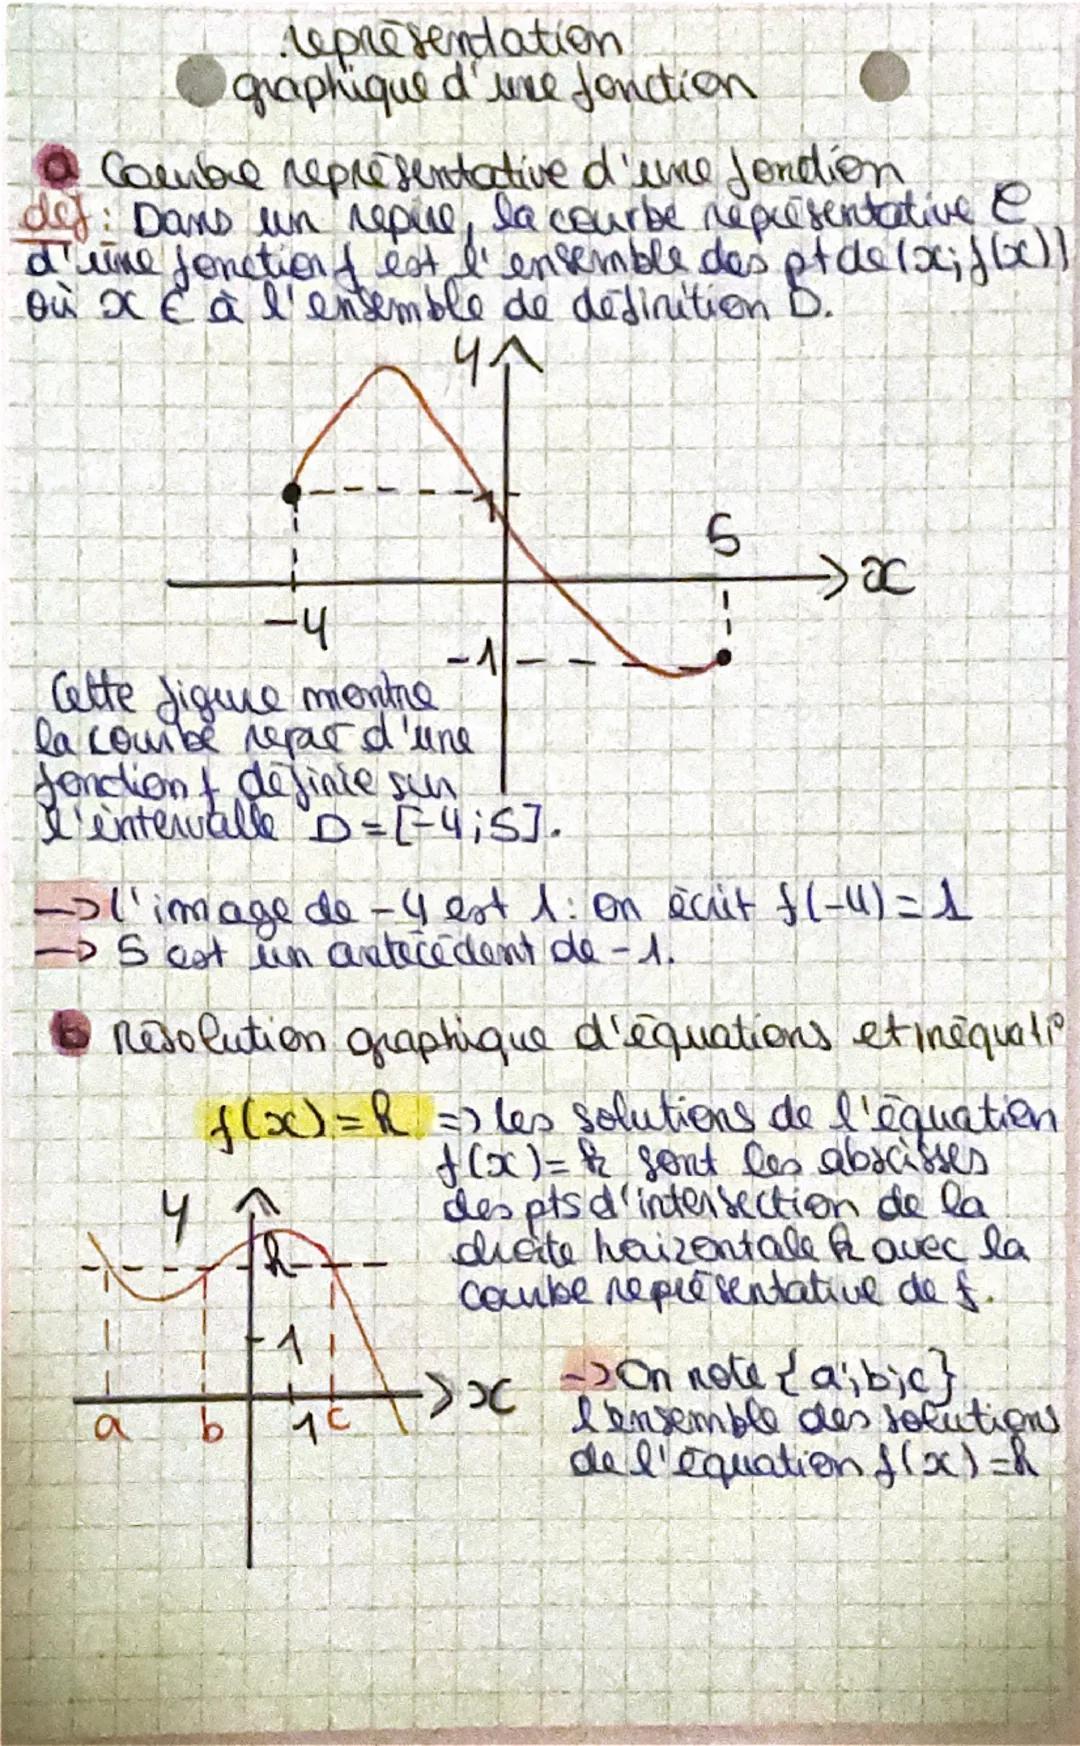 représentation
graphique d'une fonction
a Courbe représentative d'une fonction
def: Dans un repère, la courbe représentative C
d'une fonction f est l'ensemble des pt de (x; f(x))
où x ∈ à l'ensemble de définition D.
y
1
5
x
-4
-1
Cette figure montre
la courbe repré d'une
fonction f définie sur
l'intervalle D = [-4; 5].
→ L'image de -4 est 1: on écrit f(-4) = 1
→ 5 est un antécédent de -1.
b Résolution graphique d'équations et inéquati°
f(x) = k => les solutions de l'équation
f(x) = k sont les abscisses
des pts d'intersection de la
droite horizontale k avec la
courbe représentative de f.
y
k
1
x
a b 1 c
→ On note {a; b; c}
l'ensemble des solutions
de l'équation f(x) = k